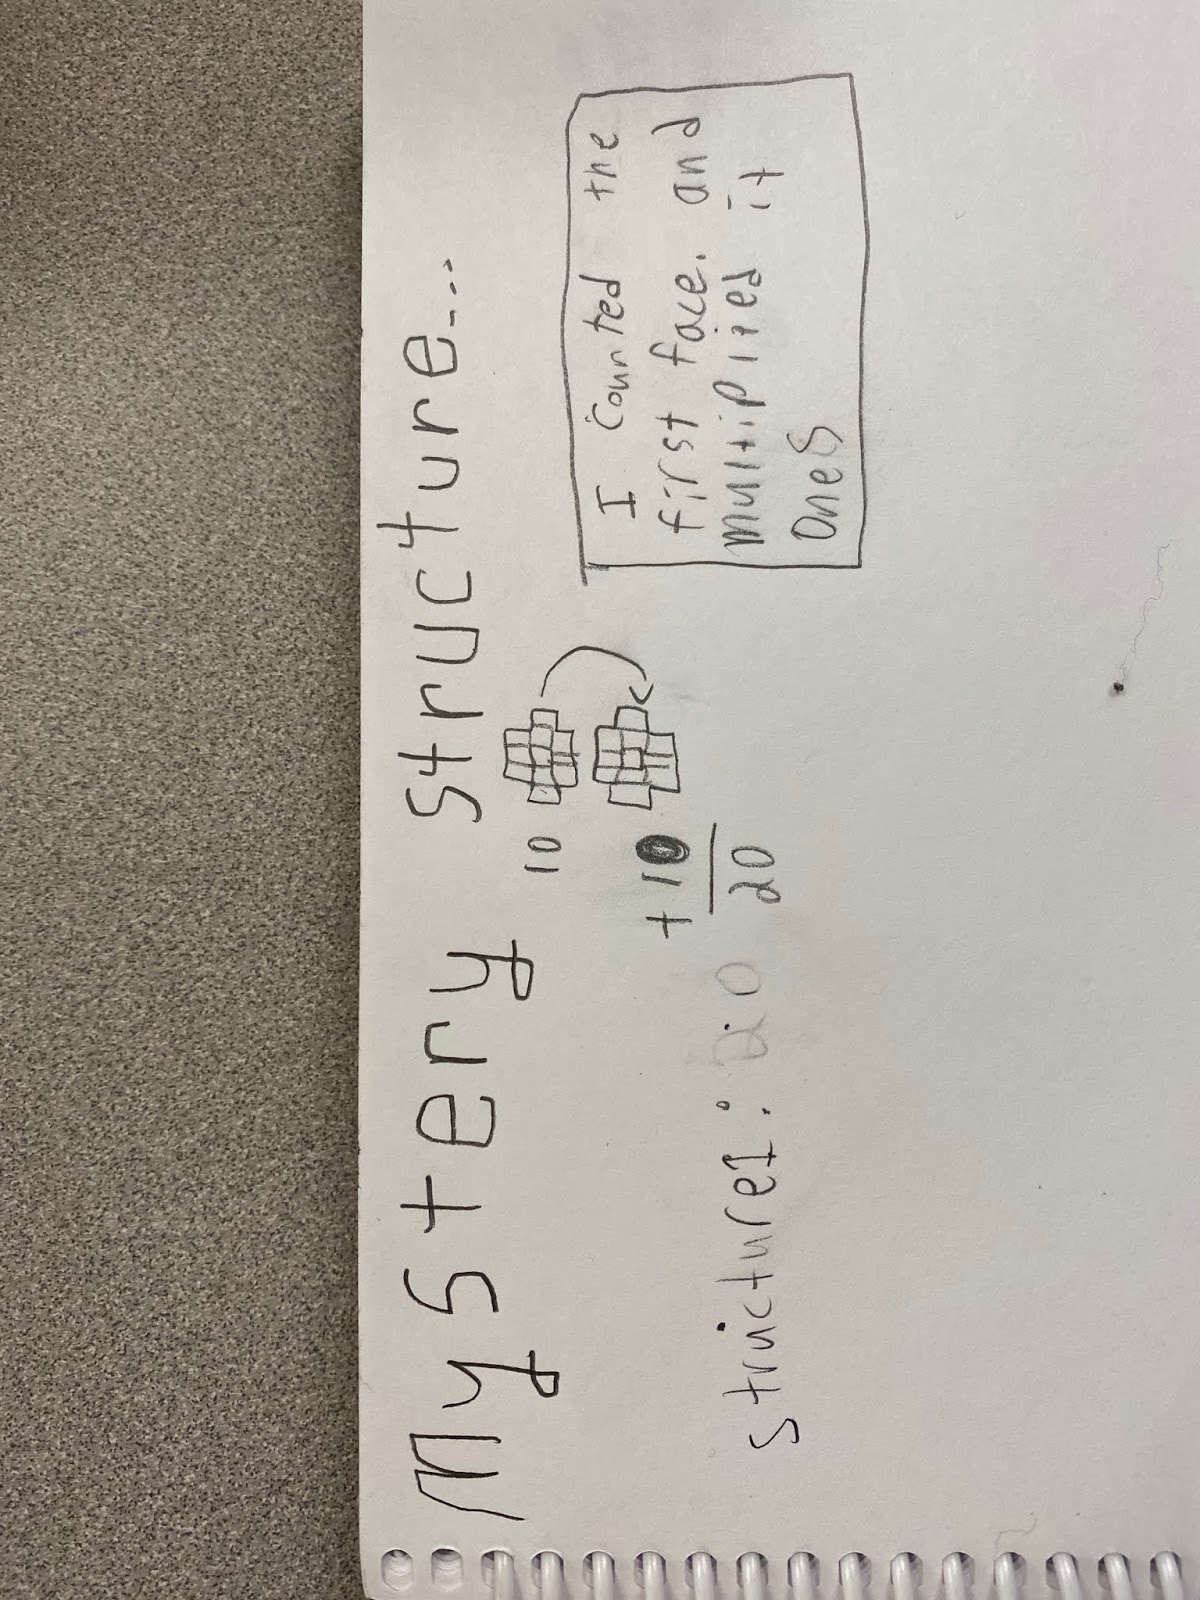 Mystery structure...
10
+10
20
structure1: 20
I counted the
first face. and
multiplied it
ones